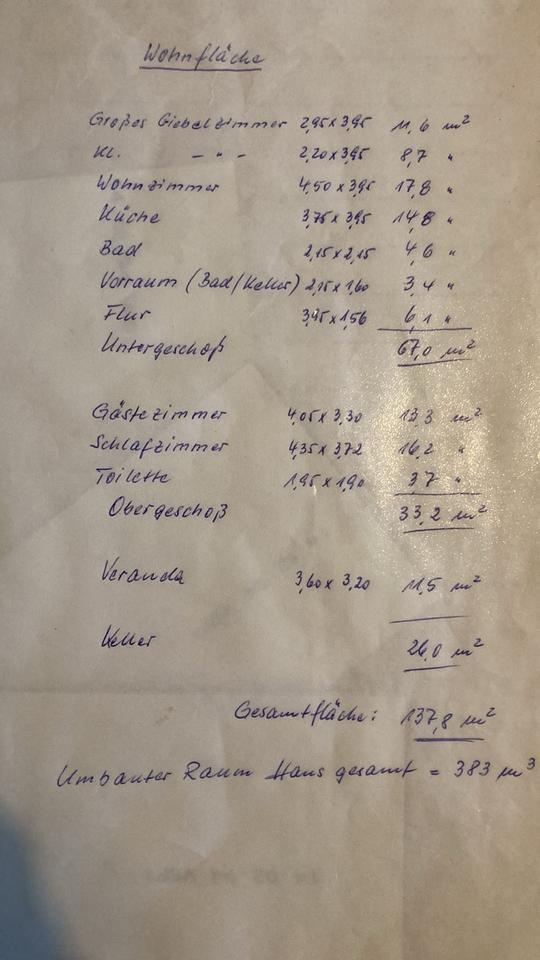 Wohnfläche
Großes Giebelzimmer 2,95 x 3,95 11,6 m²
Kl. – " – 2,20 x 3,95 8,7 "
Wohnzimmer 4,50 x 3,95 17,8 "
Küche 3,75 x 3,95 14,8 "
Bad 2,15 x 2,15 4,6 "
Vorraum (Bad/Keller) 2,15 x 1,60 3,4 "
Flur 3,95 x 1,56 6,1 "
Untergeschoß 67,0 m²
Gästezimmer 4,05 x 3,30 13,3 m²
Schlafzimmer 4,35 x 3,72 16,2 "
Toilette 1,95 x 1,90 3,7 "
Obergeschoß 33,2 m²
Veranda 3,60 x 3,20 11,5 m²
Keller 26,0 m²
Gesamtfläche: 137,8 m²
Umbauter Raum Haus gesamt = 383 m³